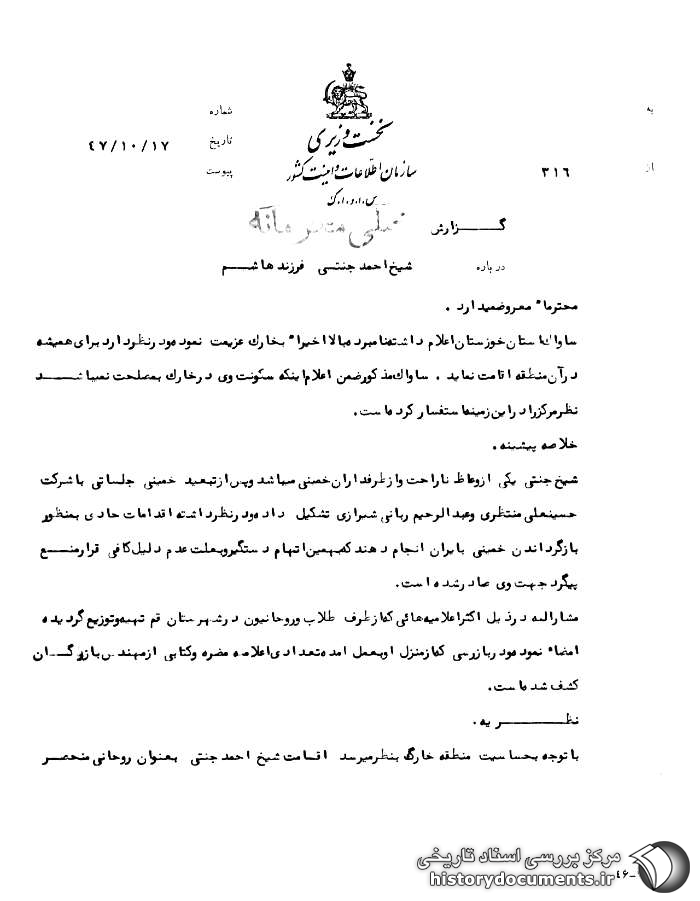 به
شماره
نخست وزیری
تاریخ ٤٧/١٠/١٧
سازمان اطلاعات و امنیت کشور
از ٣١٦
پیوست
س.ا.و.ا.ک
گـــزارش خیلی محرمانه
درباره شیخ احمد جنتی فرزند هاشم
محترماً معروضمیدارد .
ساواک استان خوزستان اعلام داشته نامبرده بالا اخیراً بخارک عزیمت نموده و در نظر دارد برای همیشه
در آن منطقه اقامت نماید . ساواک مذکور ضمن اعلام اینکه سکونت وی در خارک بمصلحت نمیباشد
نظر مرکز را در این زمینه استفسار کرده است.
خلاصه پیشینه .
شیخ جنتی یکی از وعاظ ناراحت و از طرفداران خمینی میباشد و پس از تبعید خمینی جلساتی با شرکت
حسینعلی منتظری و عبدالرحیم ربانی شیرازی تشکیل داده و در نظر داشته اقدامات حادی بمنظور
بازگرداندن خمینی بایران انجام دهند که بهمین اتهام دستگیر و بعلت عدم دلیل کافی قرار منع
پیگرد جهت وی صادر شده است.
مشارالیه در ذیل اکثر اعلامیه هائی که از طرف طلاب و روحانیون در شهرستان قم تهیه و توزیع گردیده
امضاء نموده و در بازرسی که از منزل او بعمل آمده تعدادی اعلامیه مضره و کتابی از مهندس بازرگان
کشف شده است.
نظـــریه .
با توجه بحساسیت منطقه خارک بنظر میرسد اقامت شیخ احمد جنتی بعنوان روحانی منحصر
مرکز بررسی اسناد تاریخی
historydocuments.ir